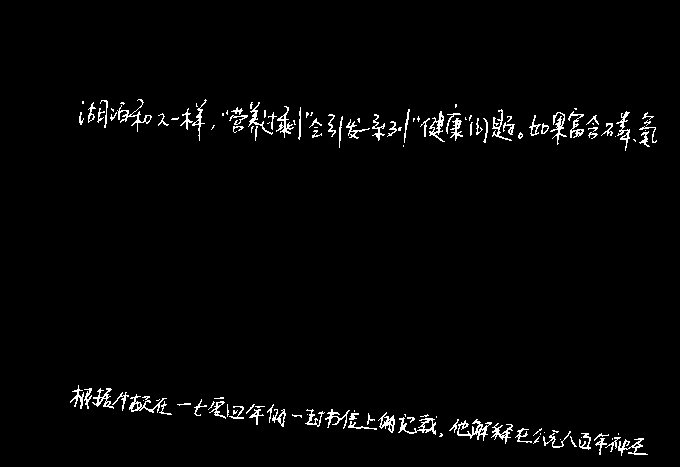 湖泊和人一样，“营养过剩”会引发一系列“健康”问题。如果富含磷、氮
根据牛顿在一七零四年的一封书信上的记载，他解释在公元八百年神圣